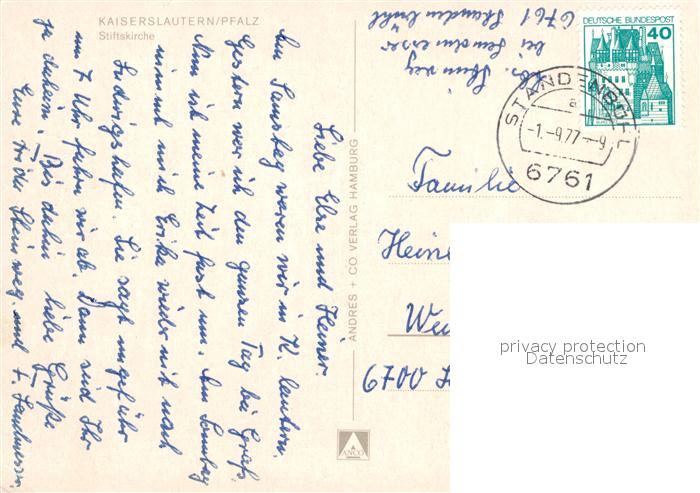 KAISERSLAUTERN/PFALZ
Stiftskirche
Liebe Else und Heiner.
Am Samstag waren wir in K. lautern.
Gestern war ich den ganzen Tag bei
Nun ist meine Zeit fast um. Am Sonntag
nimmt mich Erika wieder mit nach
Ludwigshafen. Sie sagt ungefähr
um 7 Uhr fahren wir ab. Dann sind Ihr
ja daheim. Bis dahin liebe Grüße
Eure
ANDRES + CO VERLAG HAMBURG
ANCO
bei
6761
DEUTSCHE BUNDESPOST
40
STANDENBÜHL
a
-1.-9.77--9
6761
Familie
Hein
We
6700 L
privacy protection
Datenschutz